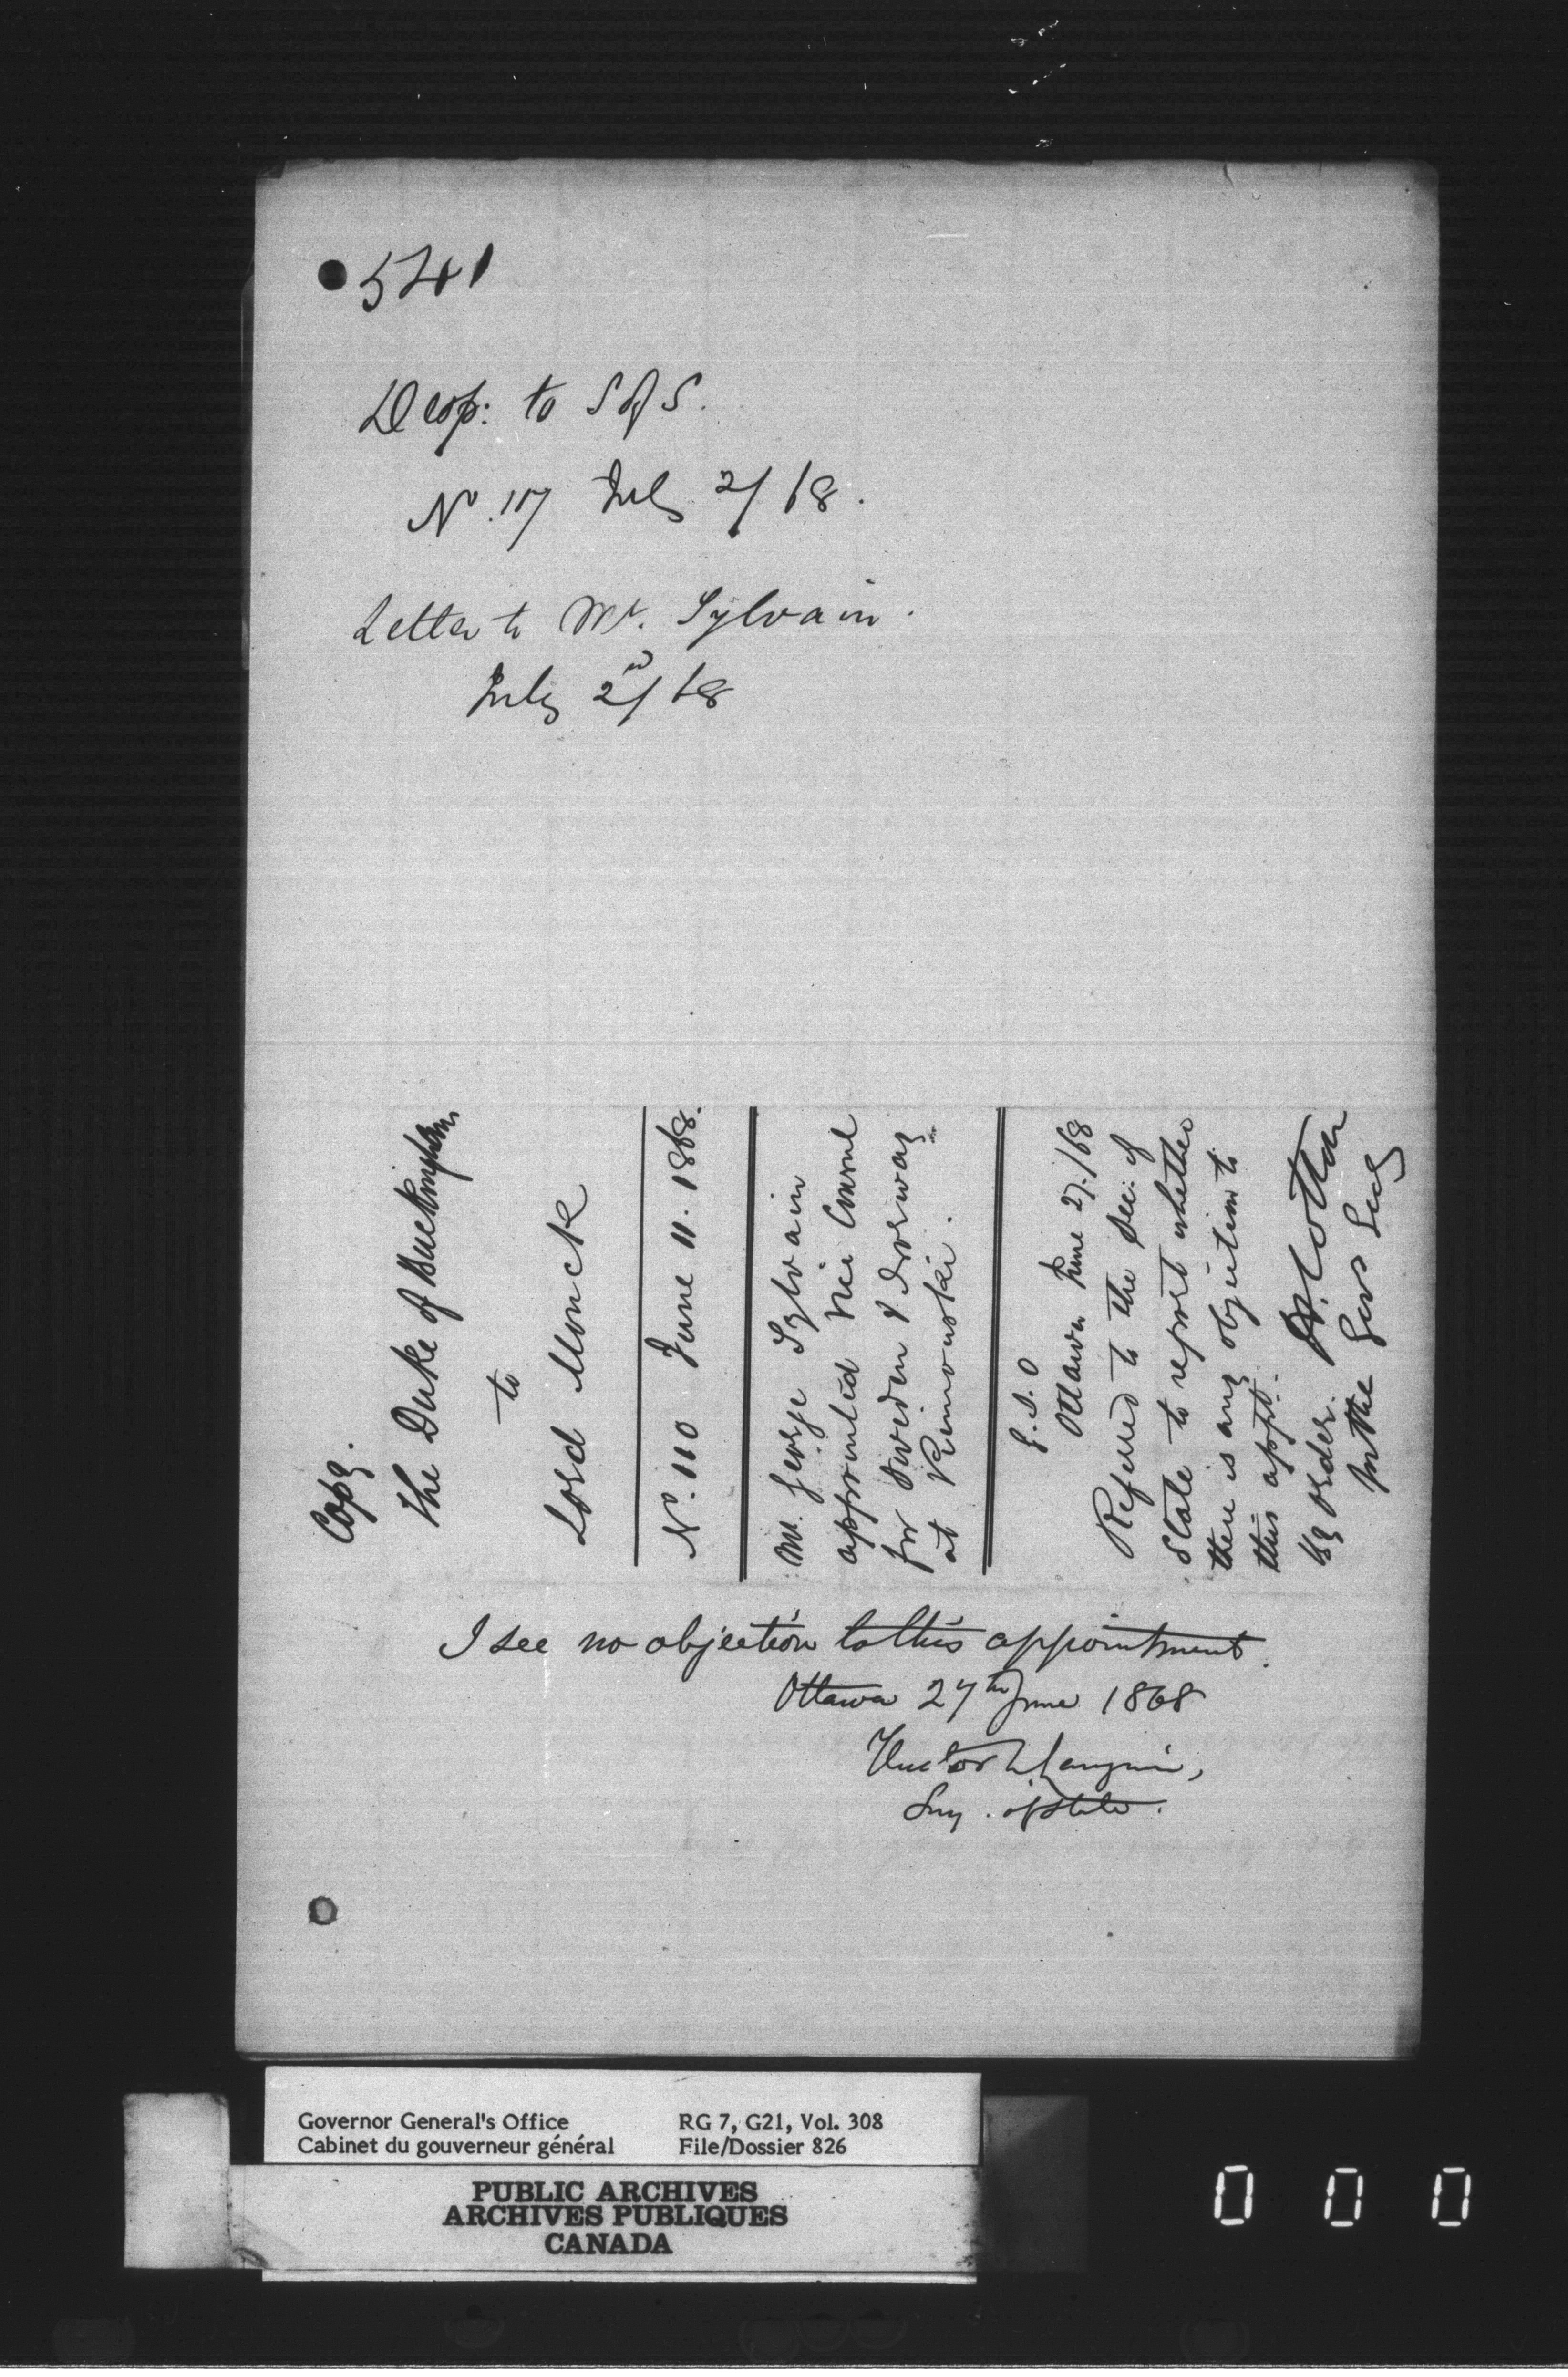 541
Desp: to S of S.
No. 117 July 2/68.
Letter to Mr. Sylvain.
July 2nd/68
Copy.
The Duke of Buckingham
to
Lord Monck
No. 110 June 11. 1868.
Mr. George Sylvain
appointed Vice Consul
for Sweden & Norway
at Rimouski.
G.S.O
Ottawa June 27/68
Referred to the Sec: of
State to report whether
there is any objection to
this appt.
By order.
for the Govs Secy
I see no objection to this appointment.
Ottawa 27th June 1868
Hector L. Langevin,
Secy. of State.
Governor General's Office
Cabinet du gouverneur général
RG 7, G21, Vol. 308
File/Dossier 826
PUBLIC ARCHIVES
ARCHIVES PUBLIQUES
CANADA
0 0 0